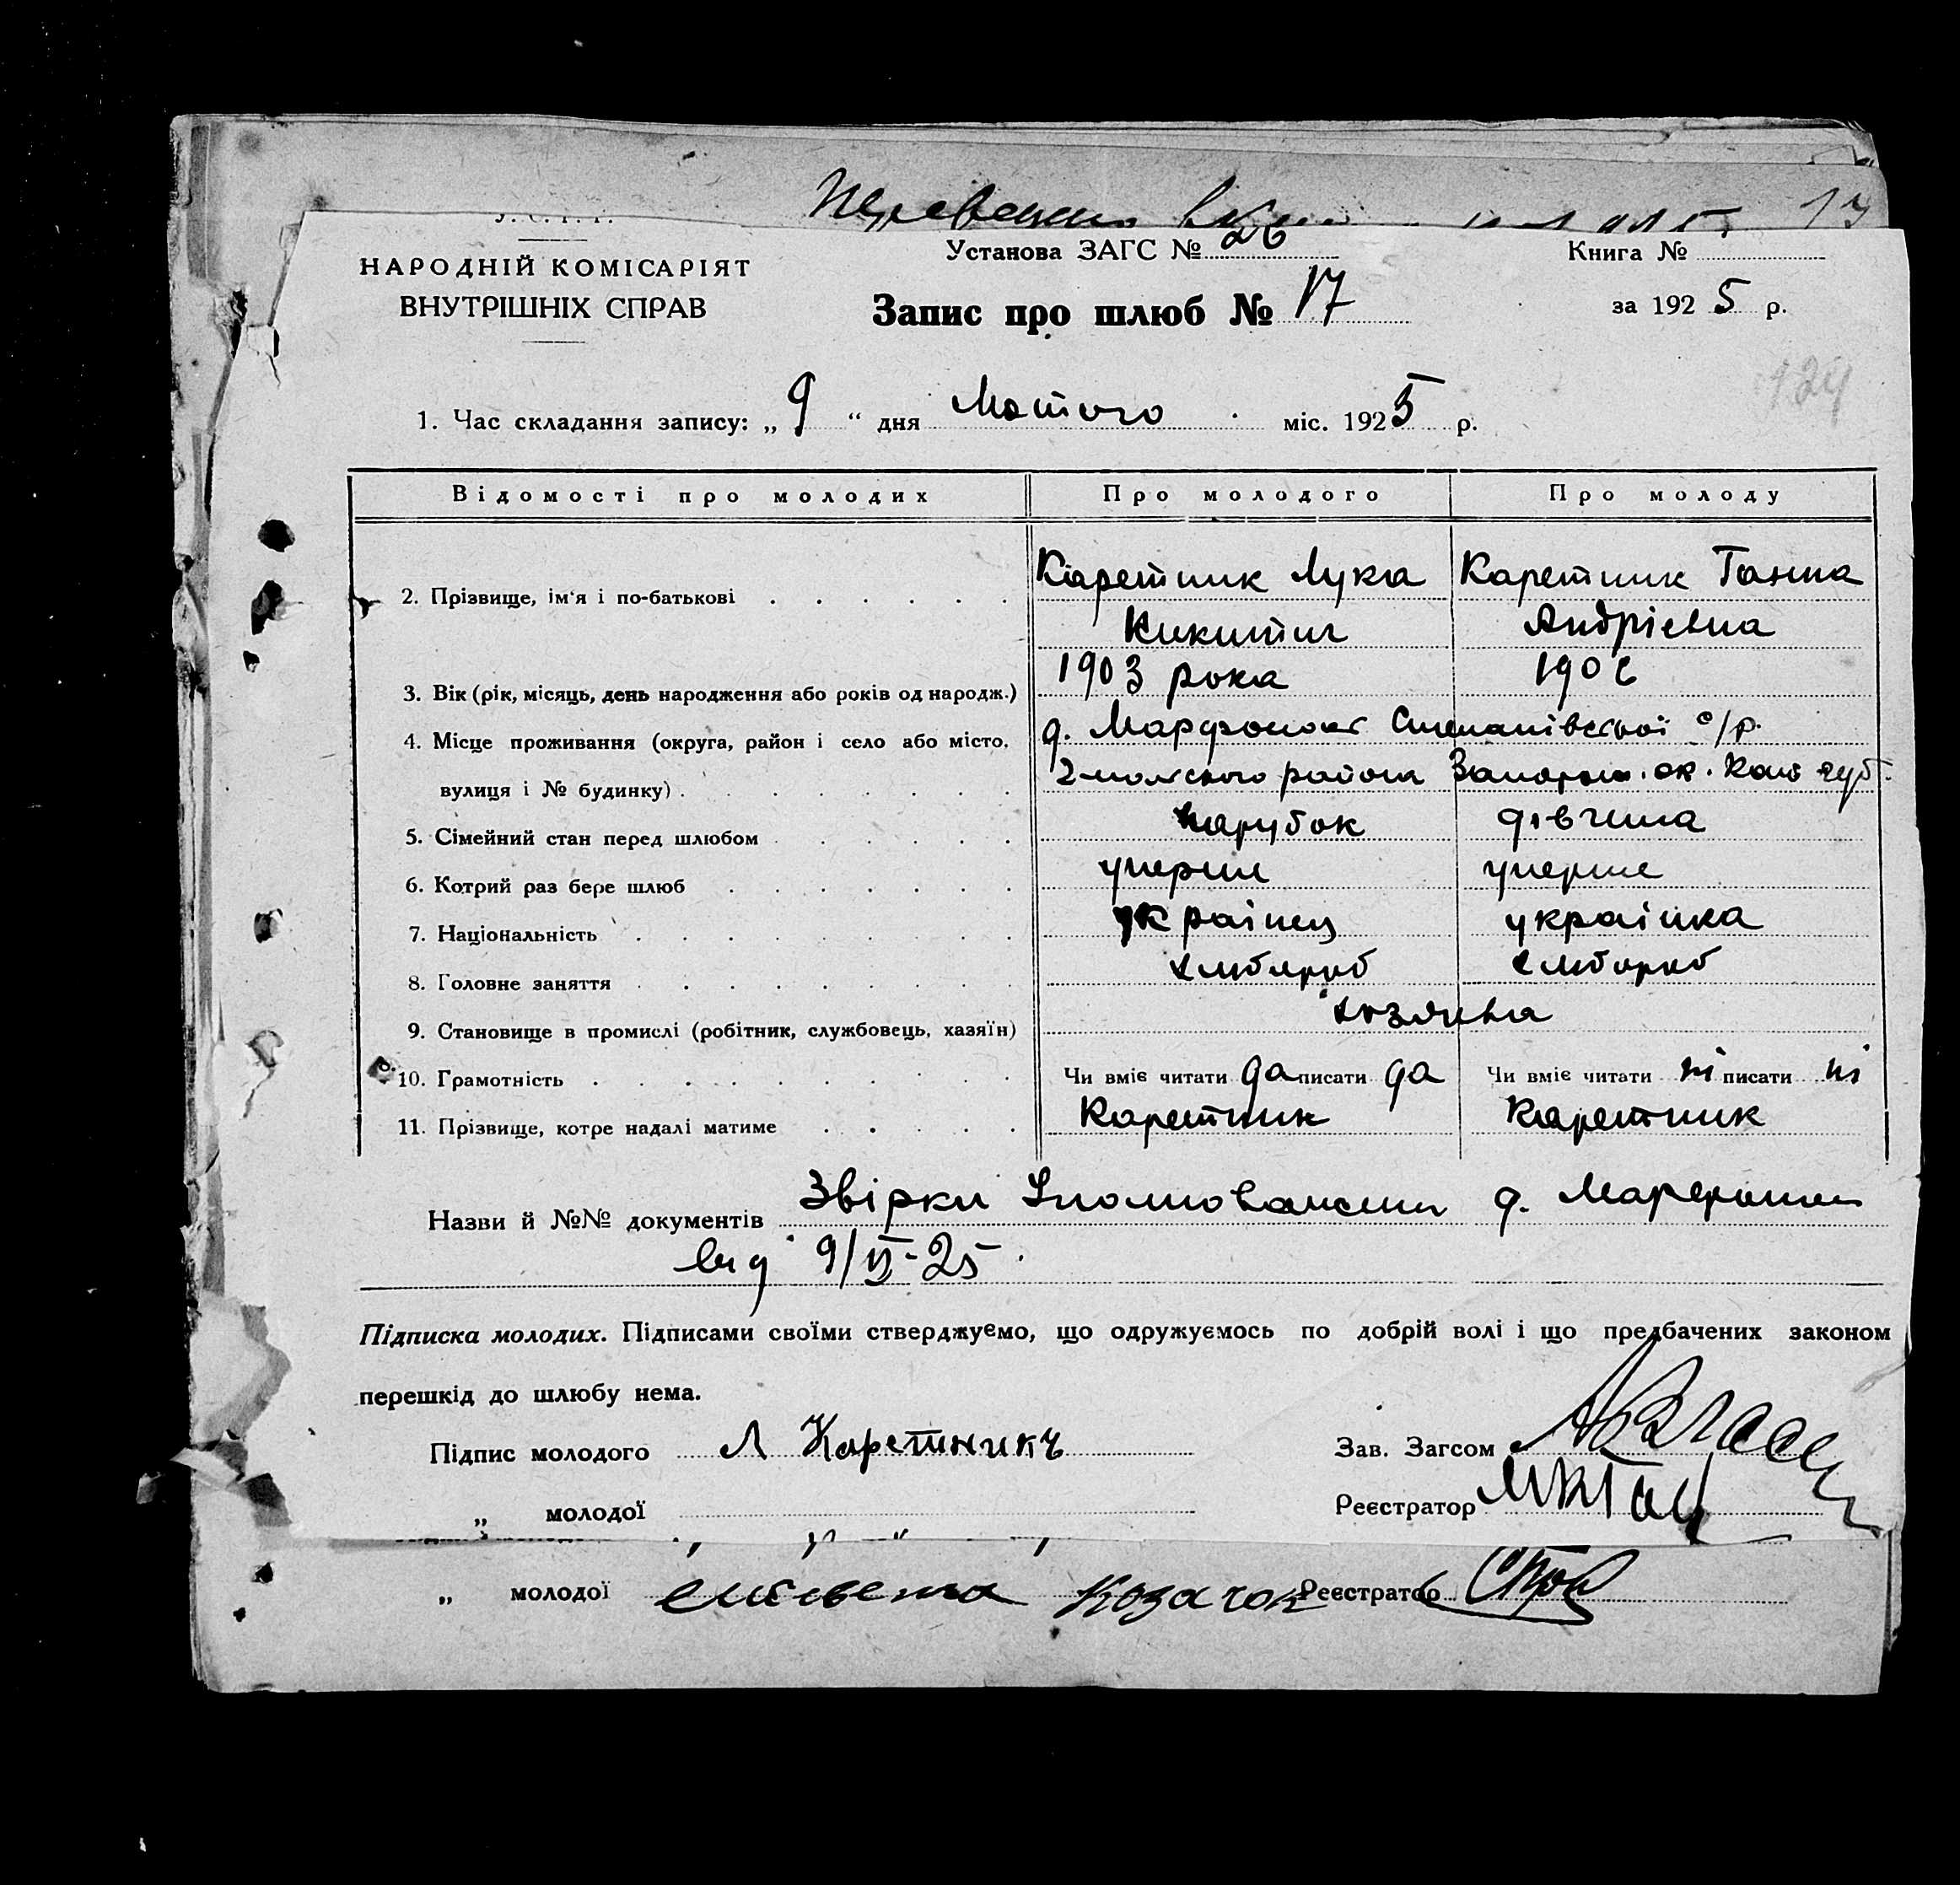 Установа ЗАГС № 26
Книга №
НАРОДНІЙ КОМІСАРІЯТ
ВНУТРІШНІХ СПРАВ
Запис про шлюб № 17
за 1925 р.
124
1. Час складання запису: „ 9 “ дня Лютого міс. 1925 р.
Відомості про молодих Про молодого Про молоду
2. Прізвище, ім‘я і по-батькові Каретник Лука Каретник Ганна
Никитич Андрієвна
3. Вік (рік, місяць, день народження або років од народж.) 1903 рока 1906
4. Місце проживання (округа, район і село або місто, д. Марфополь Степанівської с/р.
вулиця і № будинку) района Запорож. ок. Кат губ.
5. Сімейний стан перед шлюбом парубок дівчина
6. Котрий раз бере шлюб уперше уперше
7. Національність українец українка
8. Головне заняття хлібороб хлібороб
9. Становище в промислі (робітник, службовець, хазяїн) хозяєва
10. Грамотність Чи вміє читати да писати да Чи вміє читати ні писати ні
11. Прізвище, котре надалі матиме Каретник Каретник
Назви й №№ документів Звірки д.
від 9/II-25
Підписка молодих. Підписами своїми стверджуємо, що одружуємось по добрій волі і що предбачених законом
перешкід до шлюбу нема.
Підпис молодого Л Каретникъ Зав. Загсом
„ молодої Реєстратор
„ молодої Козачок Реєстратор